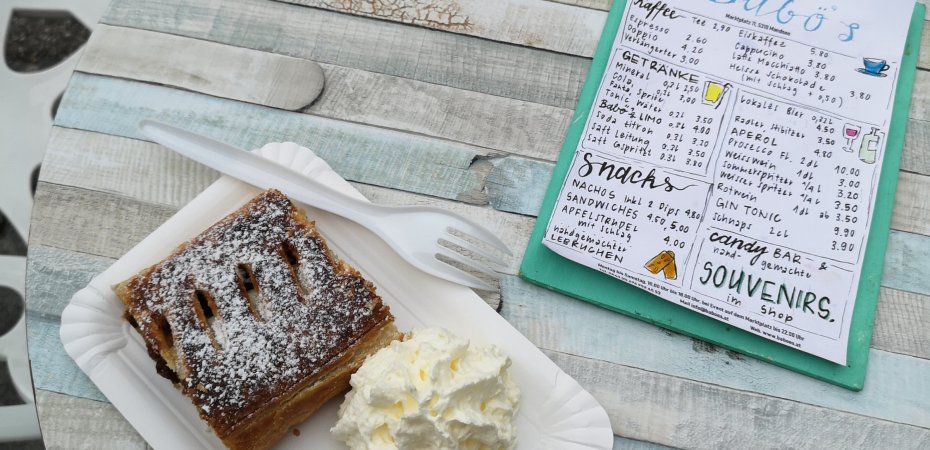 Babö's
Marktplatz 71, 5310 Mondsee
Kaffee Tee 2,90
Espresso 2.60
Doppio 4.20
Verlängerter 3.00
Eiskaffee 5.80
Cappuccino 3.80
Latte Macchiato 3.80
Heisse Schokolade 3.80
(mit Schlag + 0,50)
GETRÄNKE
Mineral 0.2l 2,50
Cola,
Fanta, Sprite 0.2l
Tonic Water 0.2l 3.50
Babö's LIMO 0.5l 4.00
Soda zitron 0.5l 3.50
Saft Leitung 0.5l 3.50
Saft Gspritzt 0.5l 3.80
Lokales Bier 0,33l
4.50
Radler Hibitzer 3.50
APEROL 4.80
Prosecco Fl. 2 dl 10.00
Weisswein 1dl 3.00
Sommerspritzer 1/4l 3.20
Weisser Spritzer 1/4l 3.20
Rotwein 1dl ab 3.50
GIN TONIC 9.90
Schnaps 2cl 3.90
Snacks
NACHOS inkl 2 Dips 4,80
SANDWICHES 4.50, 5,00
APFELSTRUDEL
mit Schlag 4.00
handgemachter
LEBKUCHEN
candy BAR &
hand-gemachte
SOUVENIRS.
im
Shop